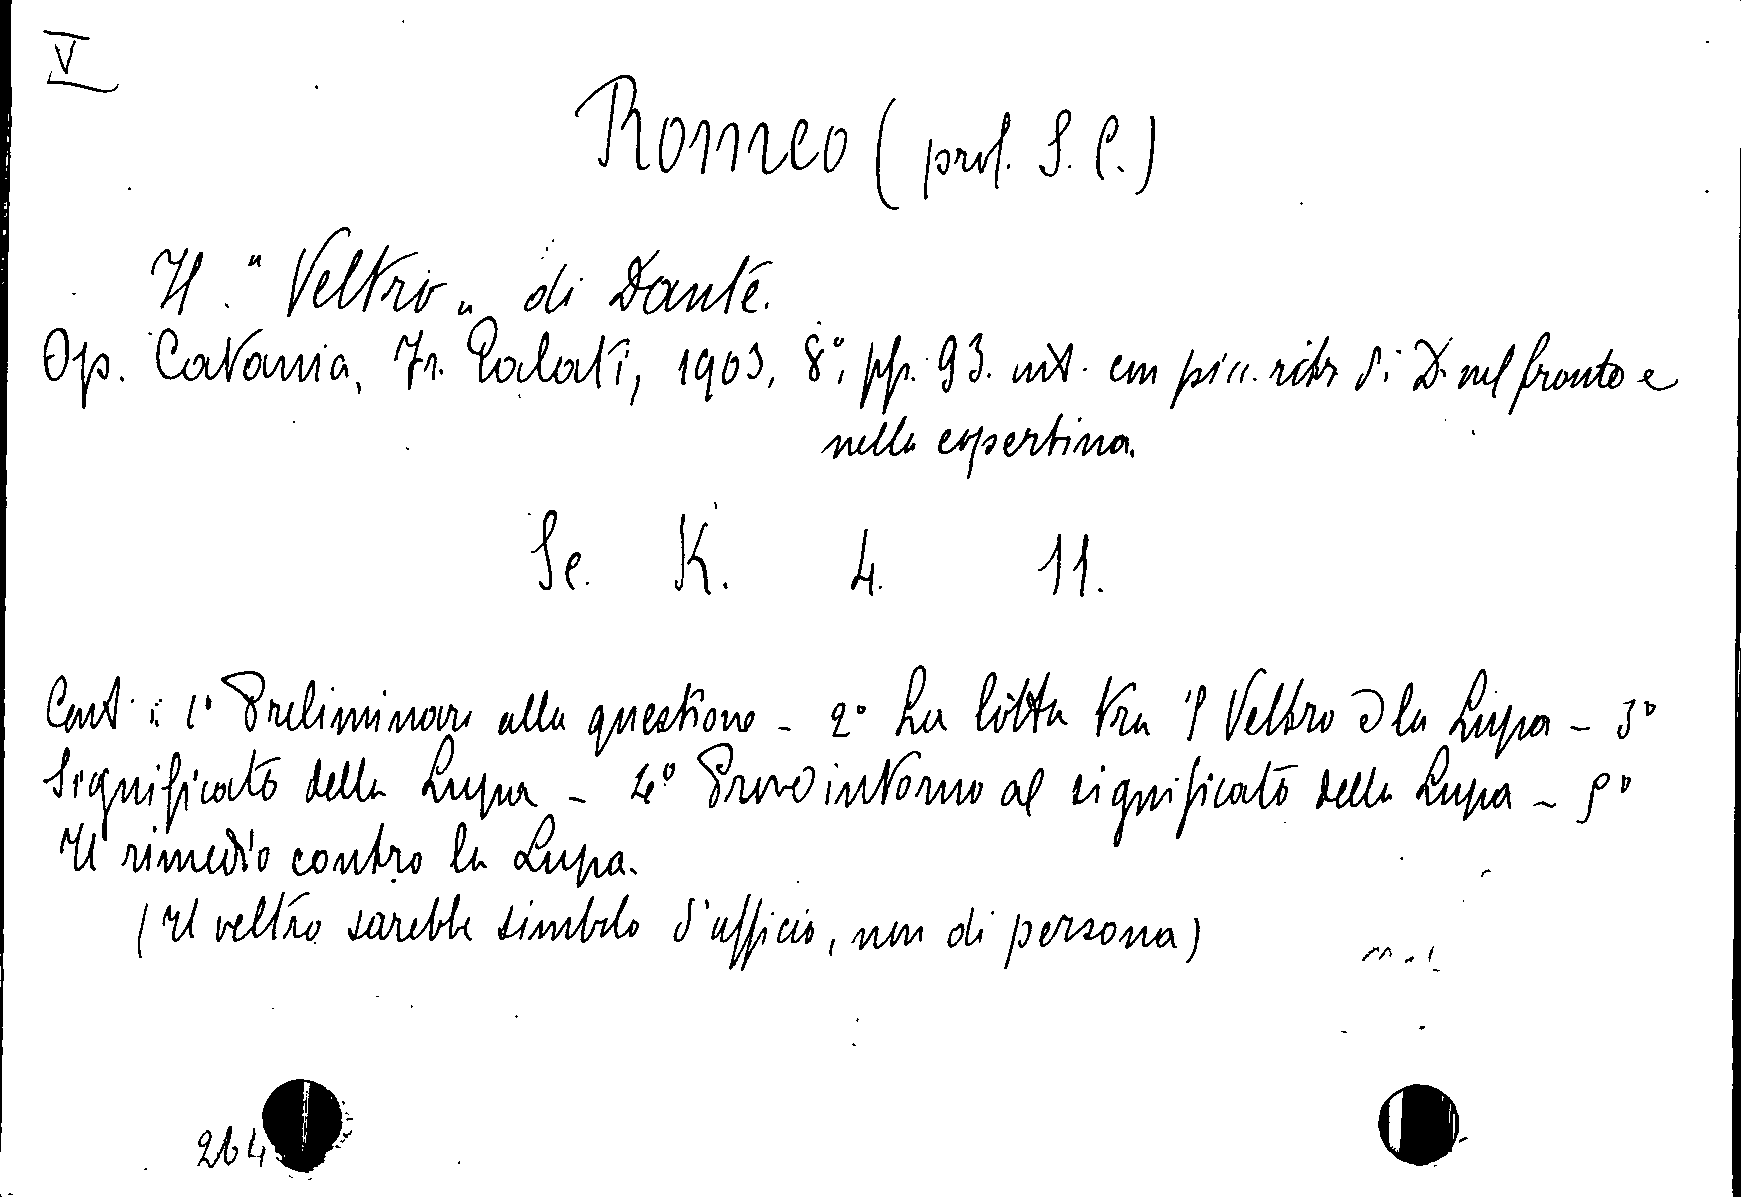 V
Romeo (prof. S. C.)
Il " Veltro " di Dante.
Op. Catania, Fr. Galati, 1903, 8°, pp. 93. int. con picc. ritr di D. nel fronte e
nella copertina.
Se. K. 4. 11.
Cont.: 1° Preliminari alla questione - 2° La lotta tra il Veltro e la Lupa - 3°
Significato della Lupa - 4° Prove intorno al significato della Lupa - 5°
Il rimedio contro la Lupa.
(Il veltro sarebbe simbolo d'ufficio, non di persona)
264